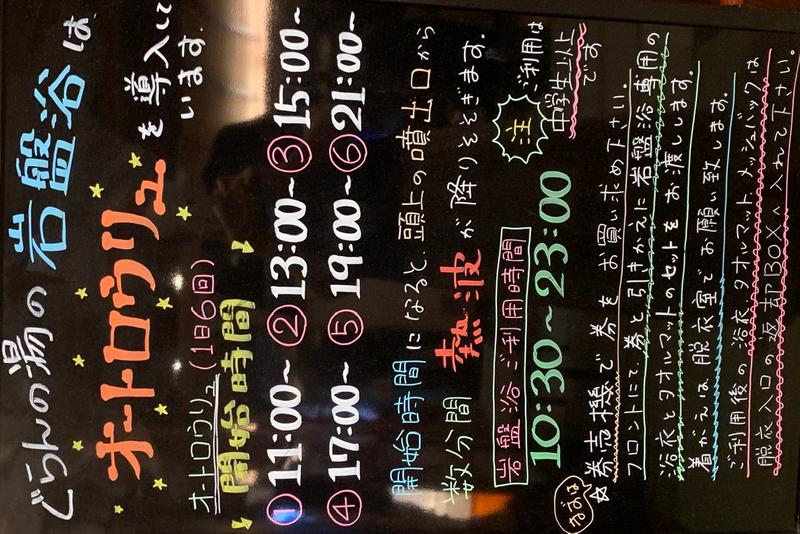 ぐらんの湯の岩盤浴は
オートロウリュを導入して
います。
オートロウリュ(1日6回)
開始時間
①11:00~ ②13:00~ ③15:00~
④17:00~ ⑤19:00~ ⑥21:00~
開始時間になると頭上の噴出口から
数分間 熱波が降りそそぎます。
岩盤浴ご利用時間
10:30~23:00
注
ご利用は
中学生以上
です
まずは
☆券売機で券をお買い求め下さい。
フロントにて券と引きかえに岩盤浴専用の
浴衣とタオルマットのセットをお渡しします。
着がえは脱衣室でお願い致します。
ご利用後の浴衣、タオルマット、メッシュバックは
脱衣入口の返却BOXへ入れて下さい。